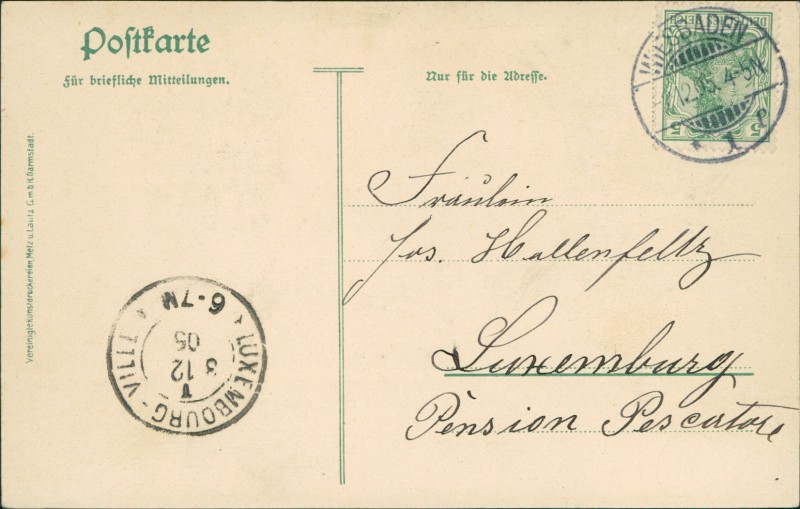 Postkarte
Für briefliche Mitteilungen.
Nur für die Adresse.
DEUTSCHES REICH
5 5
WIESBADEN
12.05. 4-5N.
1 e
Fräulein
Jos. Hallenfeltz
Luxemburg
Pension Pescatore
LUXEMBOURG-VILLE
6-7M
3 12
05
Vereinigte Kunstdruckereien, Metz u. Lautz G.m.b.H. Darmstadt.